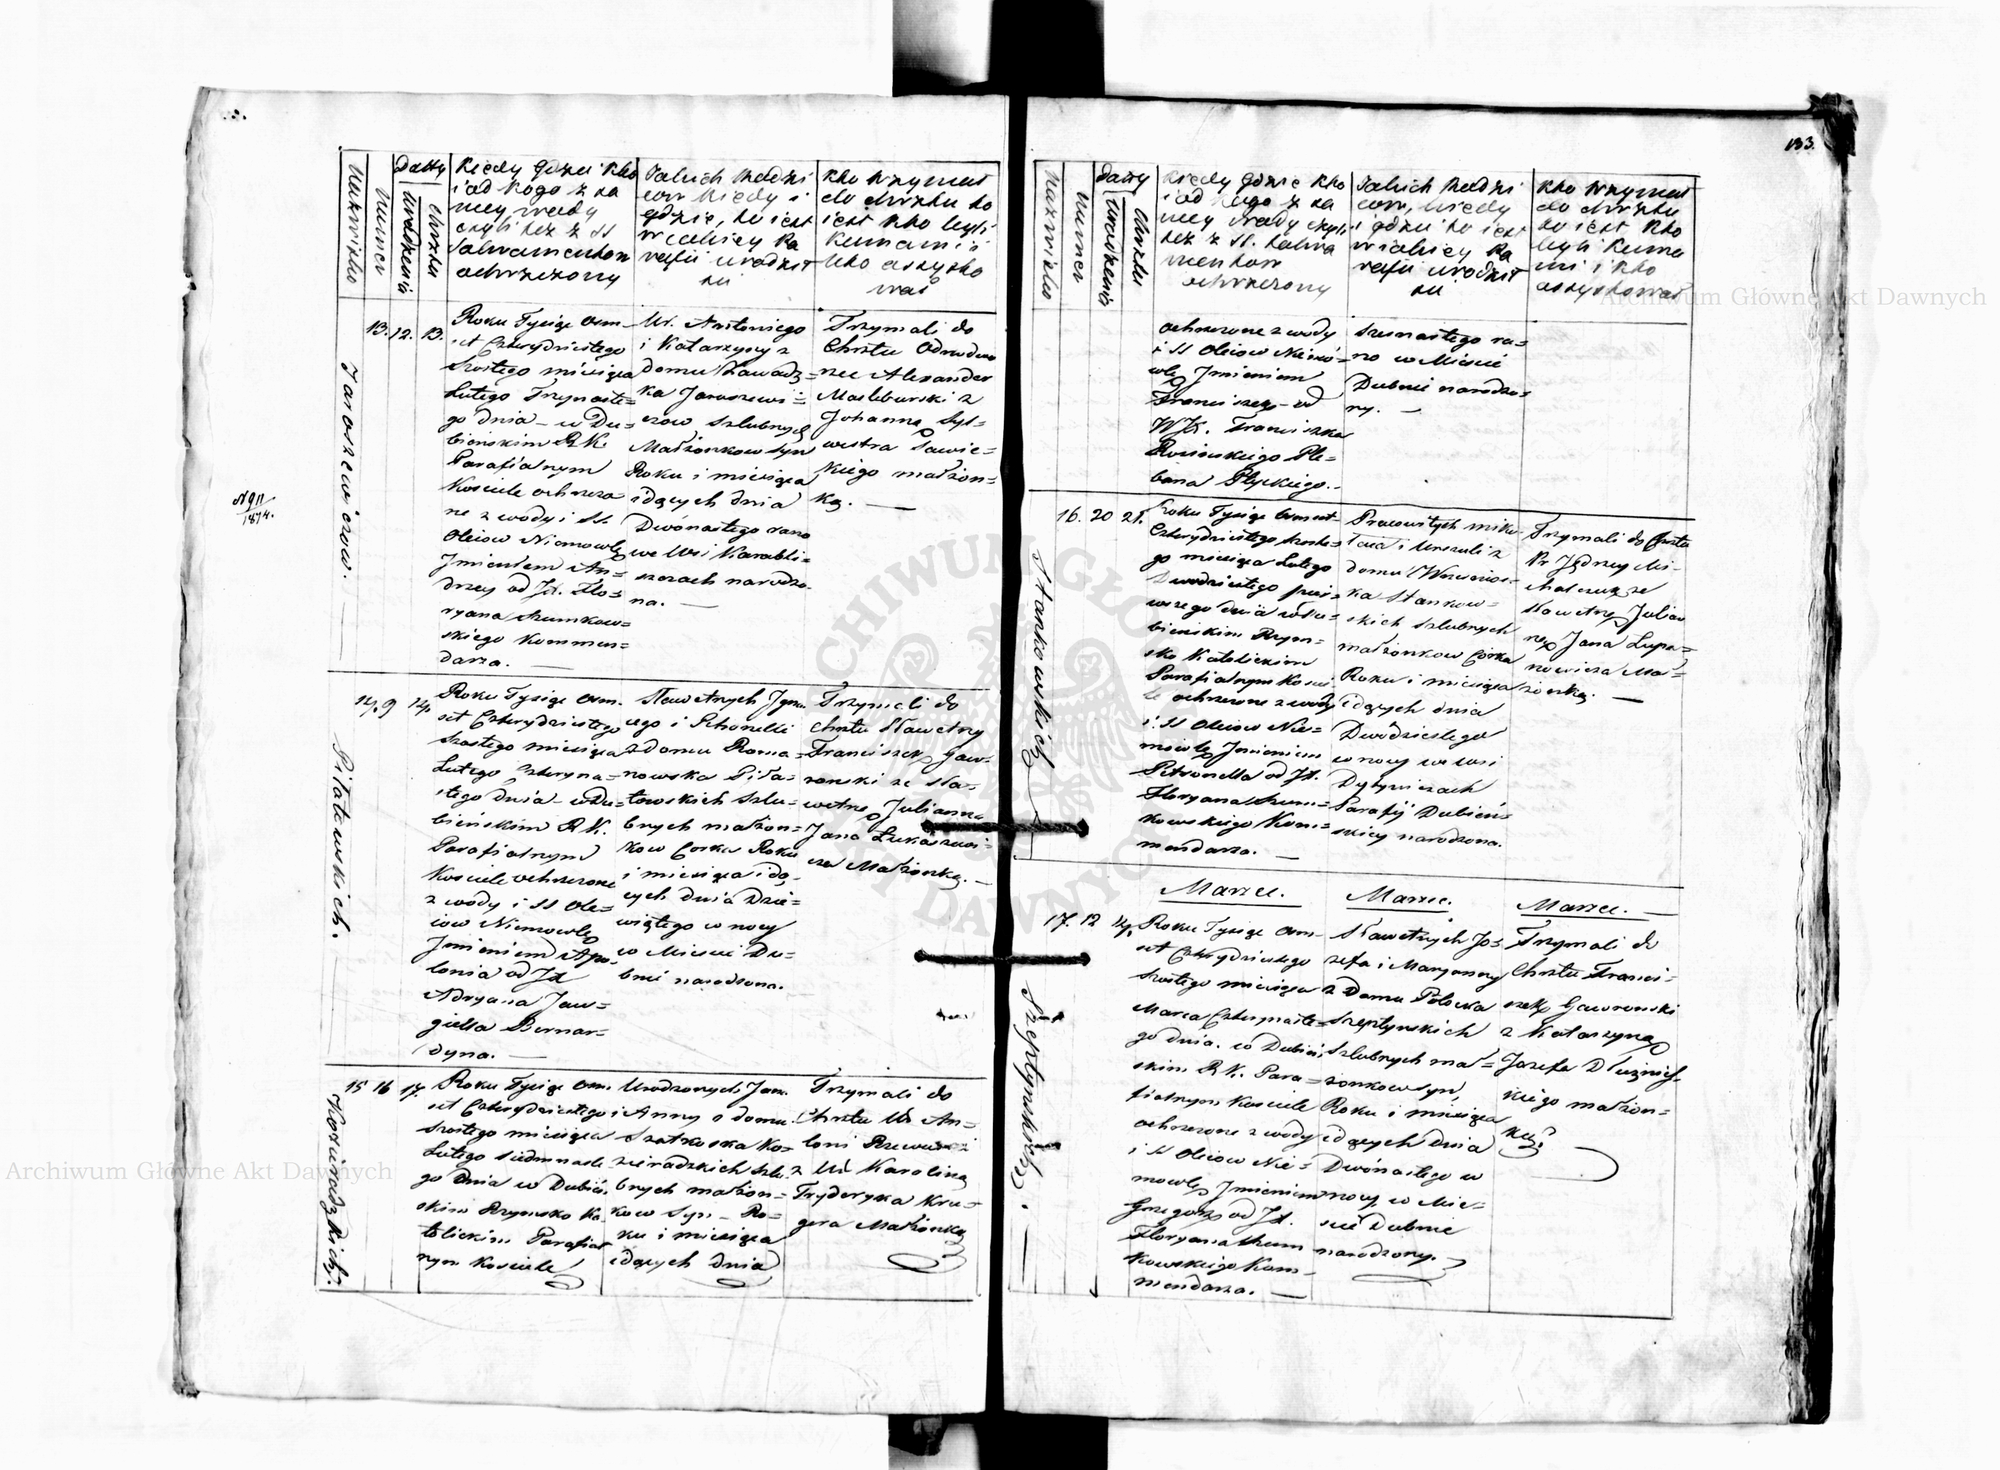 133.
Nazwisko
Numer
Datty
Urodzenia
Chrztu
Kiedy gdzie kto
i od kogo z sa
mey wody
czyli też z SS
Sakramentow
ochrzczony
Jakich Rodzi
cow kiedy i
gdzie, to iest
w iakiey Pa
rafii urodził
się
Kto trzymał
do chrztu to
iest kto byli
kumami i
kto assysto
wał
Jaroszewiczow.
13. 12. 13.
Roku Tysiąc Osm-
set Czterydziestego
szostego miesiąca
Lutego Trzynaste=
go dnia – w Du=
bienskim R.K.
Parafialnym
Kosciele ochrzczo
ne z wody i SS.
Oleiow Niemowlę
Jmieniem An=
drzey od JX. Flo=
ryana Szumkow=
skiego Kommen=
darza. —
Ur. Antoniego
i Katarzyny z
domu Zawadz=
ka Jaroszewi=
czow szlubnych
Małżonkow syn
Roku i miesiąca
idących dnia
Dwónastego rano
we Wsi Karabli=
szczach narodzo-
na. —
Trzymali do
Chrztu Odnodwo
rzec Alexander
Johanną Syl=
westra Sawic=
kiego małżon=
ką. —
N 911
1874.
Piłatowskich.
14. 9 14.
Roku Tysiąc Osm.
set Czterydziestego
szostego miesiąca
Lutego Czteryna=
stego dnia – w Du=
bieńskim R.K.
Parafialnym
Kosciele ochrzczone
z wody i SS Ole=
iow Niemowlę
Jmieniem Apo=
lonia od JX
Adryana Jaw=
giełła Bernar=
dyna. —
Sławetnych Jgna
cego i Petronelli
z domu Roma=
nowska Piła=
towskich szlu=
bnych małżon=
kow Corka Roku
i miesiąca idą,
cych dnia Dzie=
wiątego w nocy
w Miescie Du=
bnie narodzona.
Trzymali do
Chrztu Sławetny
Franciszek Jaw=
ronski ze Sła=
wetną Julianną
Jana Łukaszewi=
cza Małżonką. —
Kozieradzkich.
15 16 17.
Roku Tysiąc Osm.
set Czterydziestego
szostego miesiąca
Lutego siedmnaste
go dnia w Dubień,
skim Rzymsko Ka,
tolickim Parafial
nym Kosciele
Urodzonych Jana
i Anny z domu
Szatkoska Ko=
zieradzkich szlu.
bnych małżon=
kow Syn – Ro=
ku i miesiąca
idących dnia
Trzymali do
Chrztu Ur. An=
toni
z Ur. Karoliną
Fryderyka Kru=
gera Małżonką
Nazwisko
Numer
Datty
Urodzenia
Chrztu
Kiedy gdzie kto
i od kogo z sa
mey wody czyli
też z SS. Sakra
mentow
ochrzczony
Jakich Rodzi
cow, kiedy
i gdzie to iest
w iakiey Pa
rafii urodził
się
Kto trzymał
do chrztu
to iest kto
byli kuma
mi i kto
assystował
ochrzczone z wody
i SS Oleiow Niemo=
wlę Jmieniem
Franciszek od
WJX. Franciszka
Rosinskiego Ple=
bana Ptyckiego.
szesnastego ra=
no w Miescie
Dubnie narodzo=
ny. —
Stankowskich
16. 20 21.
Roku Tysiąc Osmset
Czterydziestego szoste=
go miesiąca Lutego
Dwudziestego pier=
wszego dnia w Du=
bienskim Rzym=
sko Katolickim
Parafialnym Kosci
le ochrzczone z wody
i SS Oleiow Nie=
mowlę Jmieniem
Petronella od JX.
Floryana Szum=
kowskiego Kom=
mendarza. —
Pracowitych Miko
łaia i Urszuli z
domu
ka Stankow=
skich szlubnych
małżonkow Corka
Roku i miesiąca
idących dnia
Dwódziestego
w nocy we wsi
Dytyniczach
Parafij Dubień
skiey narodzona.
Trzymali do Chrztu
Pr Jędrzey Mi-
chalczuk ze
Sławetną Julian
ną Jana Łupa=
nowicza Mał=
żonką. —
Marzec.
Marzec.
Marzec. —
Szeptynskich.
17. 12 14.
Roku Tysiąc Osm-
set Czterydziestego
szostego miesiąca
Marca Czternaste=
go dnia. w Dubień,
skim R.K. Para=
fialnym Kosciele
ochrzczone z wody
i SS Oleiow Nie=
mowlę Jmieniem
Grzegorz od JX.
Floryana Szum
kowskiego Kom-
mendarza. —
Sławetnych Jó=
zefa i Maryanny
z Domu Polocka
Szeptynskich
szlubnych mał=
żonkow syn,
Roku i miesiąca
idących dnia
Dwónastego w
nocy w Mie=
scie Dubnie
narodzony. —
Trzymali do
Chrztu Franci=
szek Gaworonski
z Katarzyną
Jozefa Dłużnieſ
kiego małżon=
ką.
Archiwum Główne Akt Dawnych
Archiwum Główne Akt Dawnych
ARCHIWUM GŁÓWNE AKT DAWNYCH